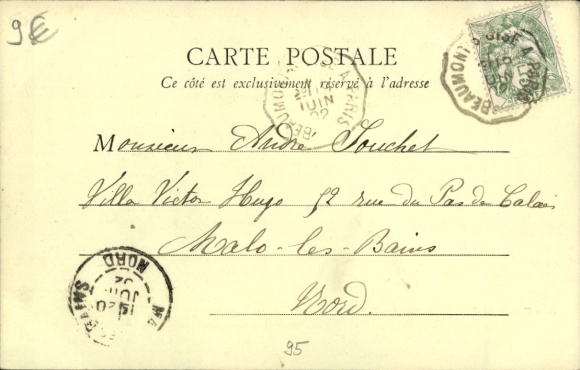 9€
CARTE POSTALE
Ce côté est exclusivement réservé à l'adresse
BEAUMONT S OISE A PARIS
JUIN
02
BEAUMONT A PARIS
JUIN
02
Monsieur André Souchet
Villa Victor Hugo 52 rue du Pas de Calais
Malo-les-Bains
Nord.
NORD
JUIN
02
95